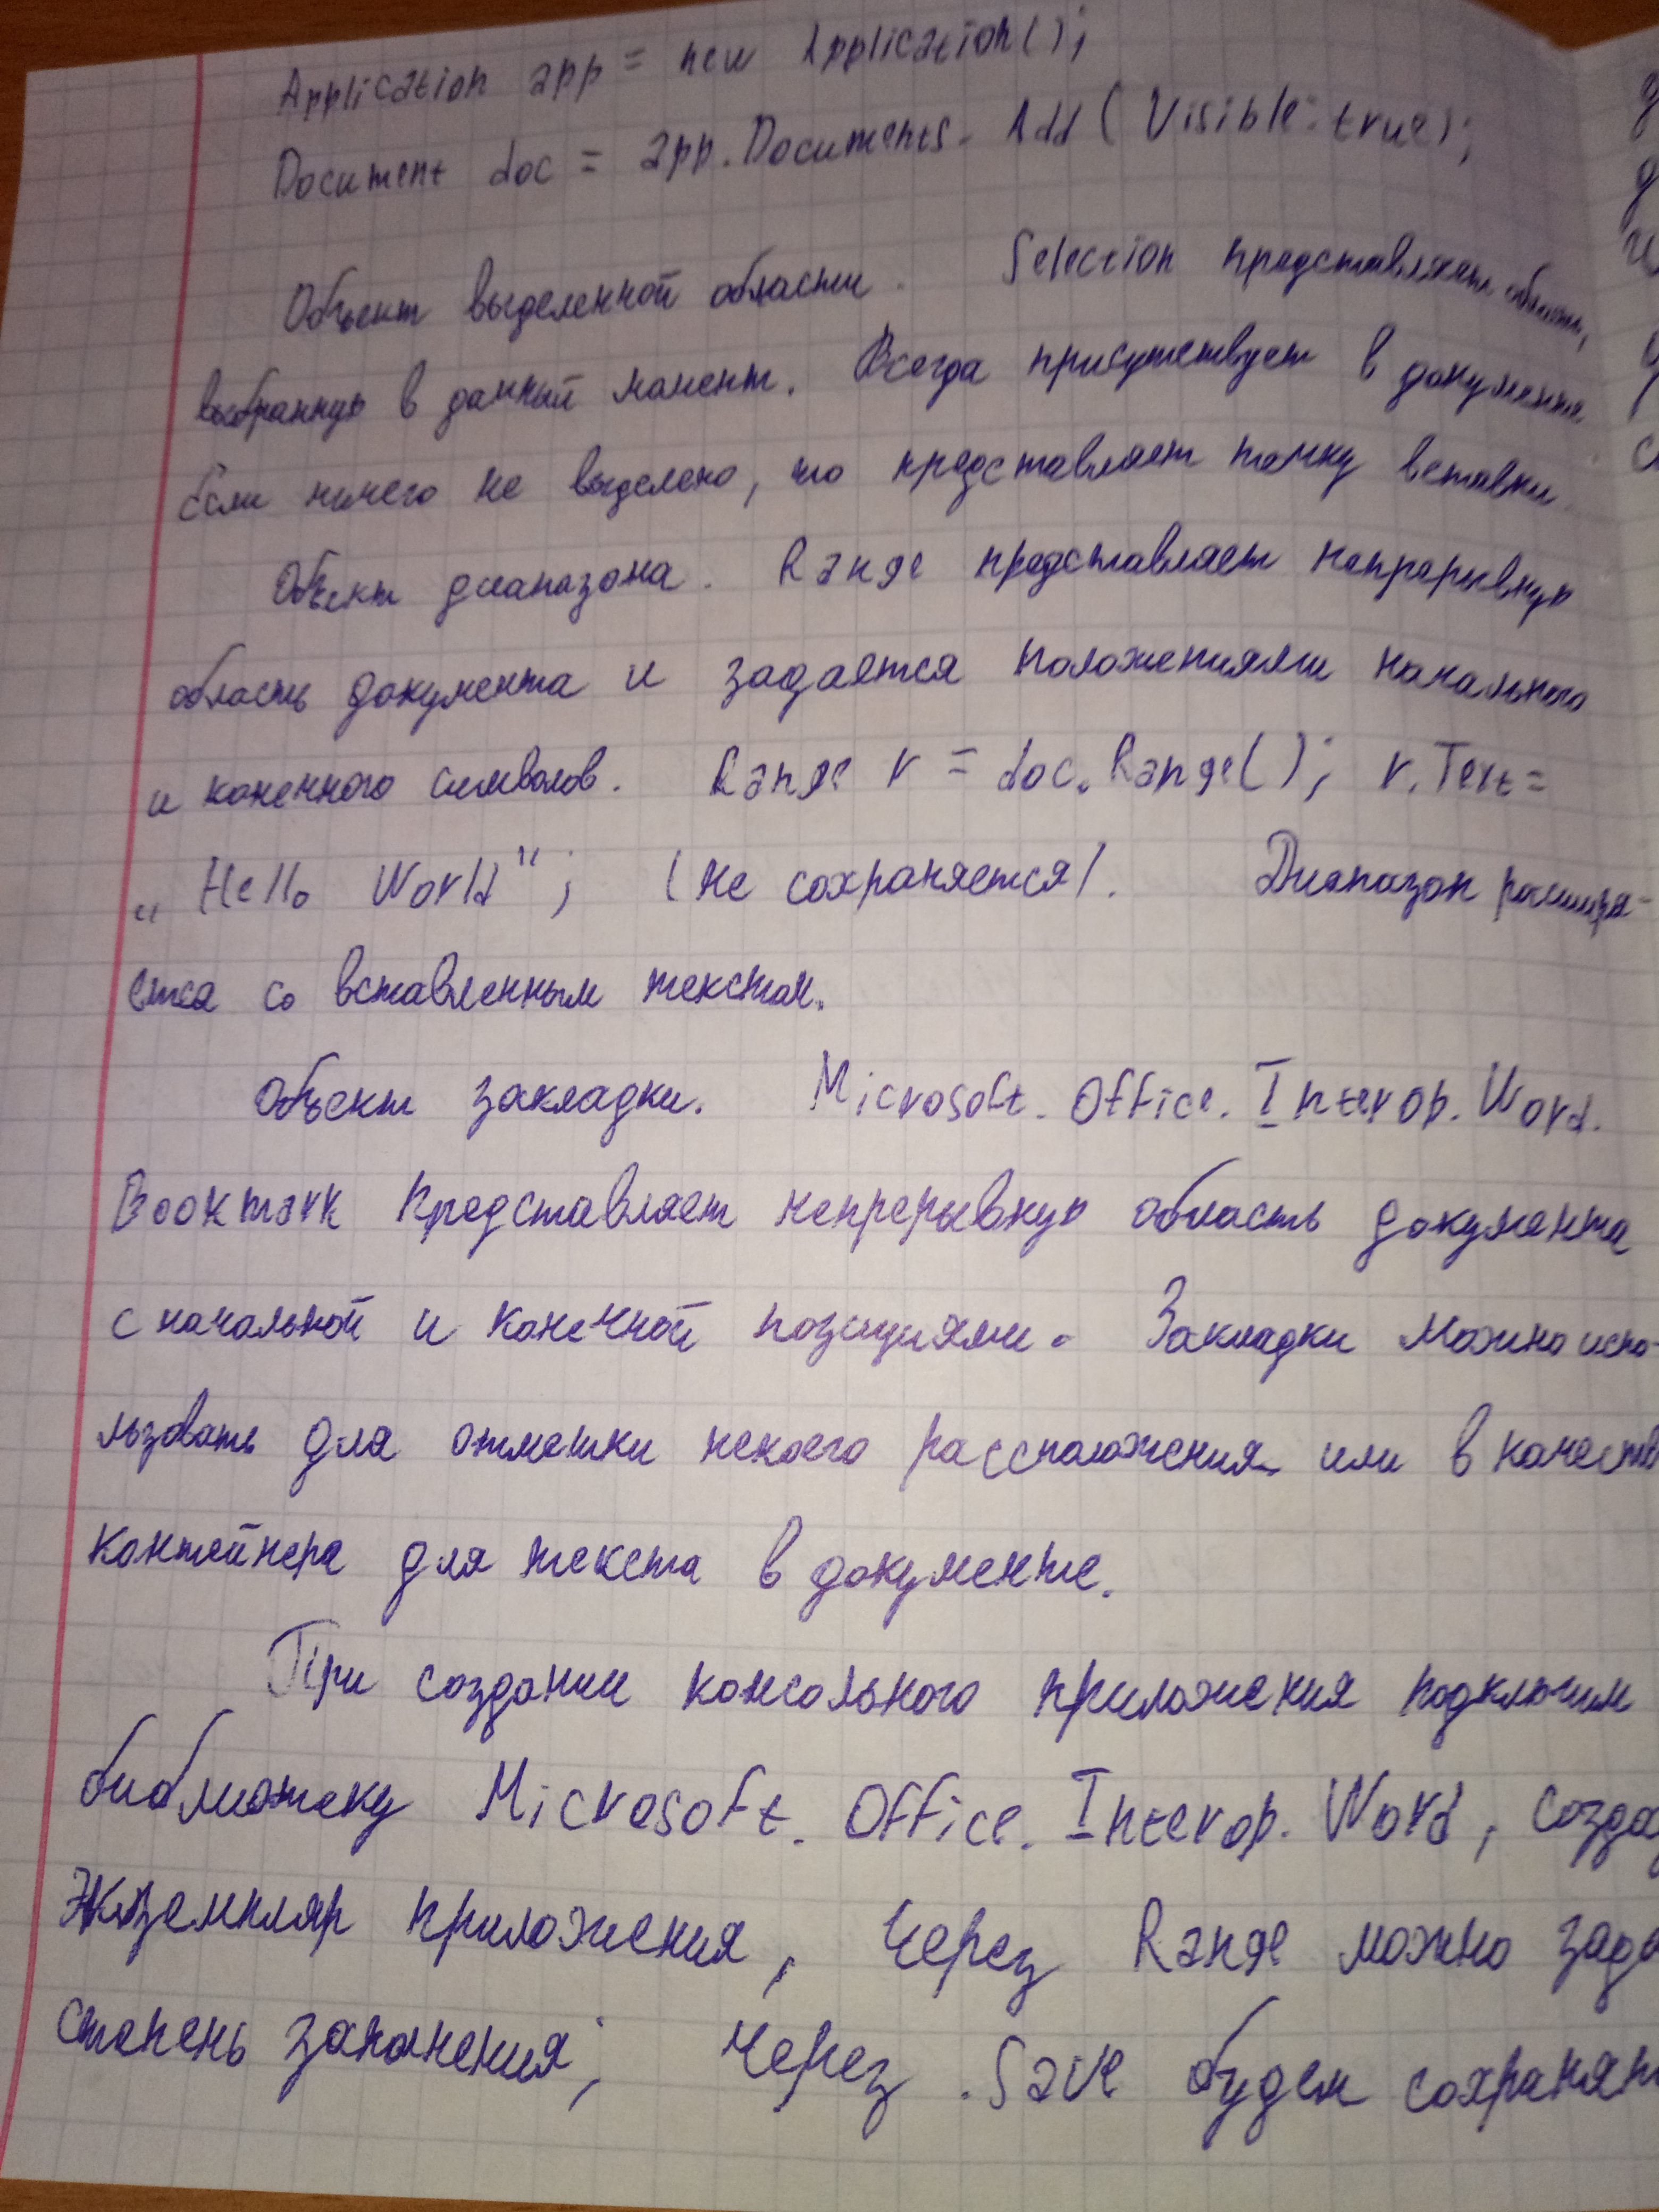 Application app = new Application();
Document doc = app.Documents.Add(Visible:true);
Объект выделенной области. Selection представляет область,
выбранную в данный момент. Всегда присутствует в документе.
Если ничего не выделено, то представляет точку вставки.
Объект диапазона. Range представляет непрерывную
область документа и задается положениями начального
и конечного символов. Range r = doc.Range(); r.Text=
„Hello World"; (не сохраняется). Диапазон расширя-
ется со вставленным текстом.
Объект закладки. Microsoft.Office.Interop.Word.
Bookmark представляет непрерывную область документа
с начальной и конечной позициями. Закладки можно испо-
льзовать для отметки некоего рассположения или в качеств
контейнера для текста в документе.
При создании консольного приложения подключим
библиотеку Microsoft.Office.Interop.Word, созда
экземпляр приложения, через Range можно зада
степень заполнения; через .Save будем сохранят